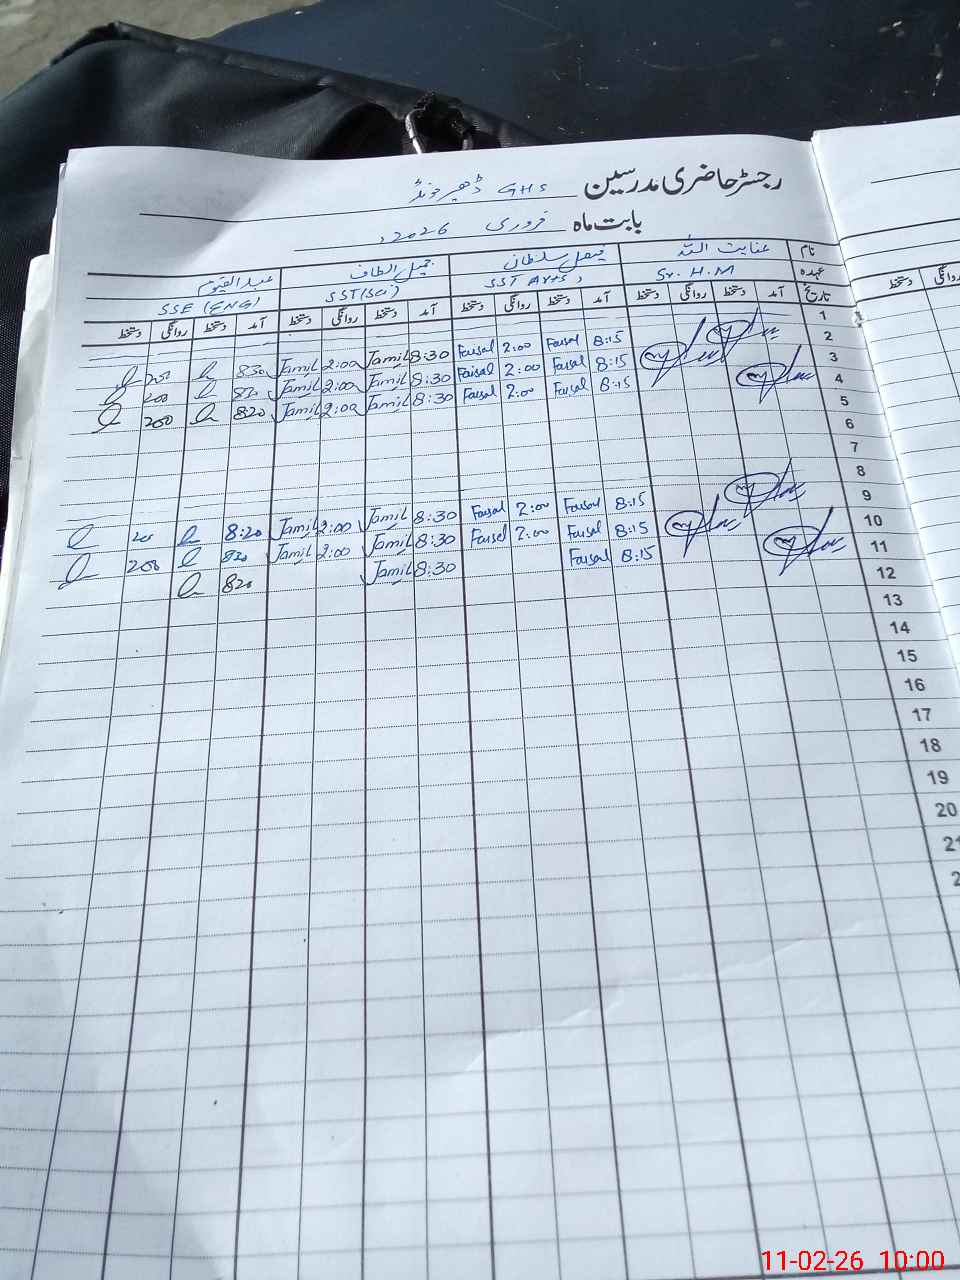 رجسٹر حاضری مدرسین GHS
بابت ماہ فروری 2026ء
نام عنایت اللہ فیصل سلطان جمیل الطاف عبدالقیوم
عہدہ Sr. H.M SST Arts SST(Sci) SSE (ENG)
تاریخ آمد دستخط روانگی دستخط آمد دستخط روانگی دستخط آمد دستخط روانگی دستخط آمد دستخط روانگی دستخط
روانگی دستخط
1
2
3 8:15 Faisal 2:00 Faisal 8:30 Jamil 2:00 Jamil 830 200
4 8:15 Faisal 2:00 Faisal 8:30 Jamil 2:00 Jamil 820 200
5 8:15 Faisal 2:00 Faisal 8:30 Jamil 2:00 Jamil 820 200
6
7
8
9 8:15 Faisal 2:00 Faisal 8:30 Jamil 2:00 Jamil 8:20 200
10 8:15 Faisal 2:00 Faisal 8:30 Jamil 2:00 Jamil 820 200
11 8:15 Faisal 8:30 Jamil 820
12
13
14
15
16
17
18
19
20
11-02-26 10:00